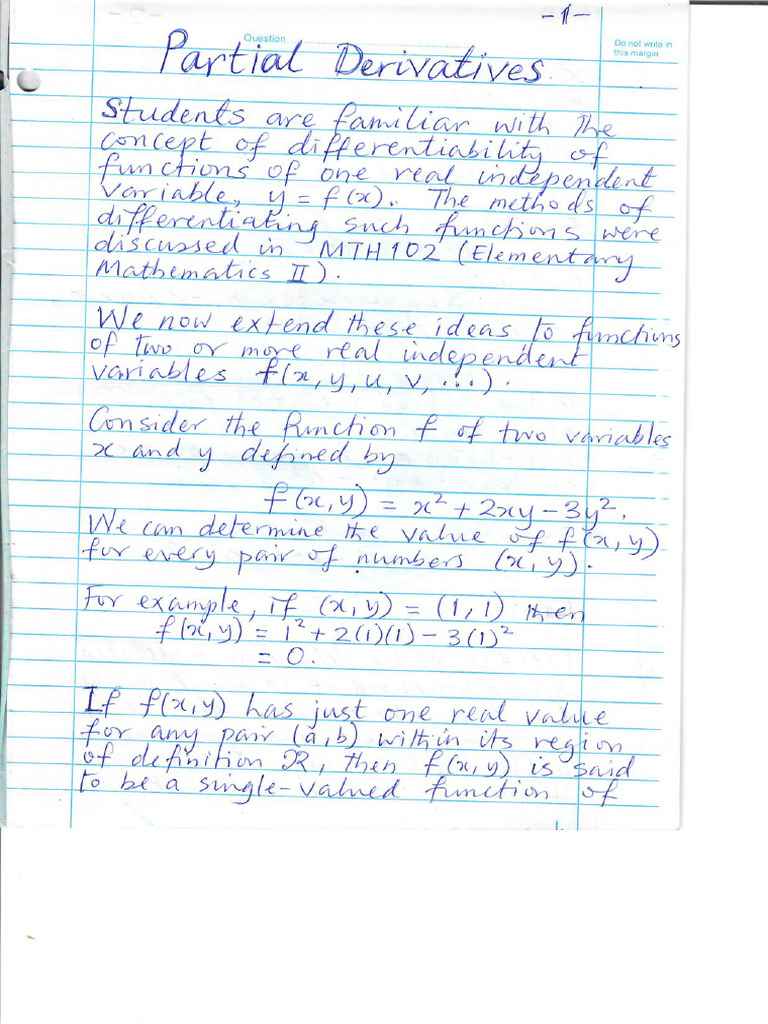 -1-
Question
Do not write in
this margin
Partial Derivatives
Students are familiar with the
concept of differentiability of
functions of one real independent
variable, y = f(x). The methods of
differentiating such functions were
discussed in MTH102 (Elementary
Mathematics II).
We now extend these ideas to functions
of two or more real independent
variables f(x, y, u, v, ...).
Consider the function f of two variables
x and y defined by
f(x, y) = x² + 2xy - 3y².
We can determine the value of f(x, y)
for every pair of numbers (x, y).
For example, if (x, y) = (1, 1) then
f(x, y) = 1² + 2(1)(1) - 3(1)²
= 0.
If f(x, y) has just one real value
for any pair (a, b) within its region
of definition R, then f(x, y) is said
to be a single-valued function of